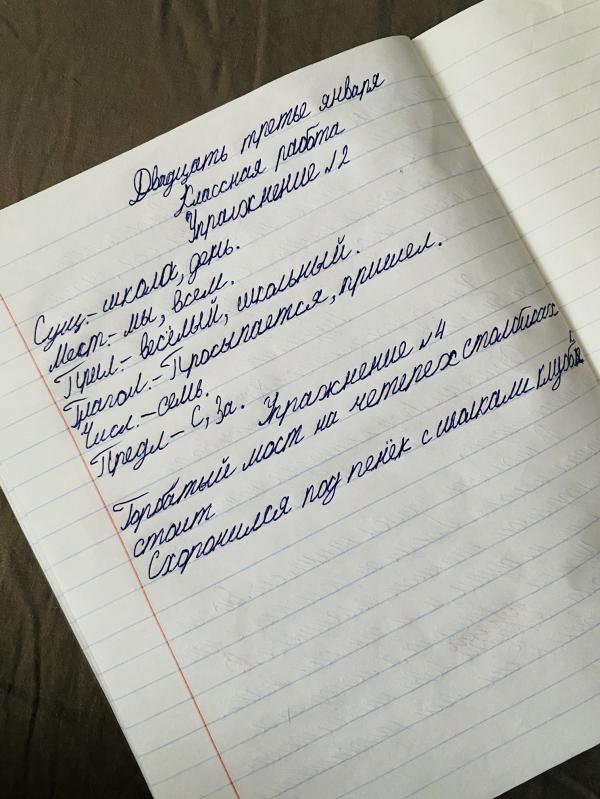 Двадцать третье января
Классная работа
Упражнение №2
Сущ.- школа, день.
Мест- мы, всем.
Прил.- весёлый, школьный.
Глагол.- Просыпается, пришел.
Числ.- семь.
Предл- С, за.
Упражнение №4
Горбатый мост на четерех столбиках
стоит
Схоронился под пенёк с иголками клубок